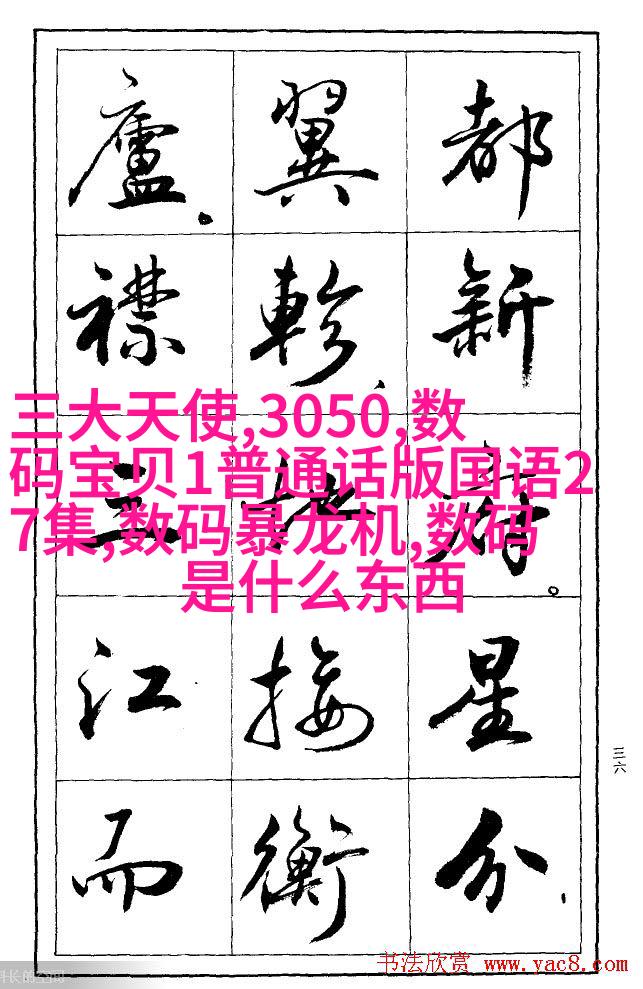 都新府。星分
翼軫、地接衡
廬。襟三江而
三大天使,3050,数
码宝贝1普通话版国语2
7集,数码暴龙机,数码
是什么东西
三六
书法欣赏 www.yac8.com
长的空间